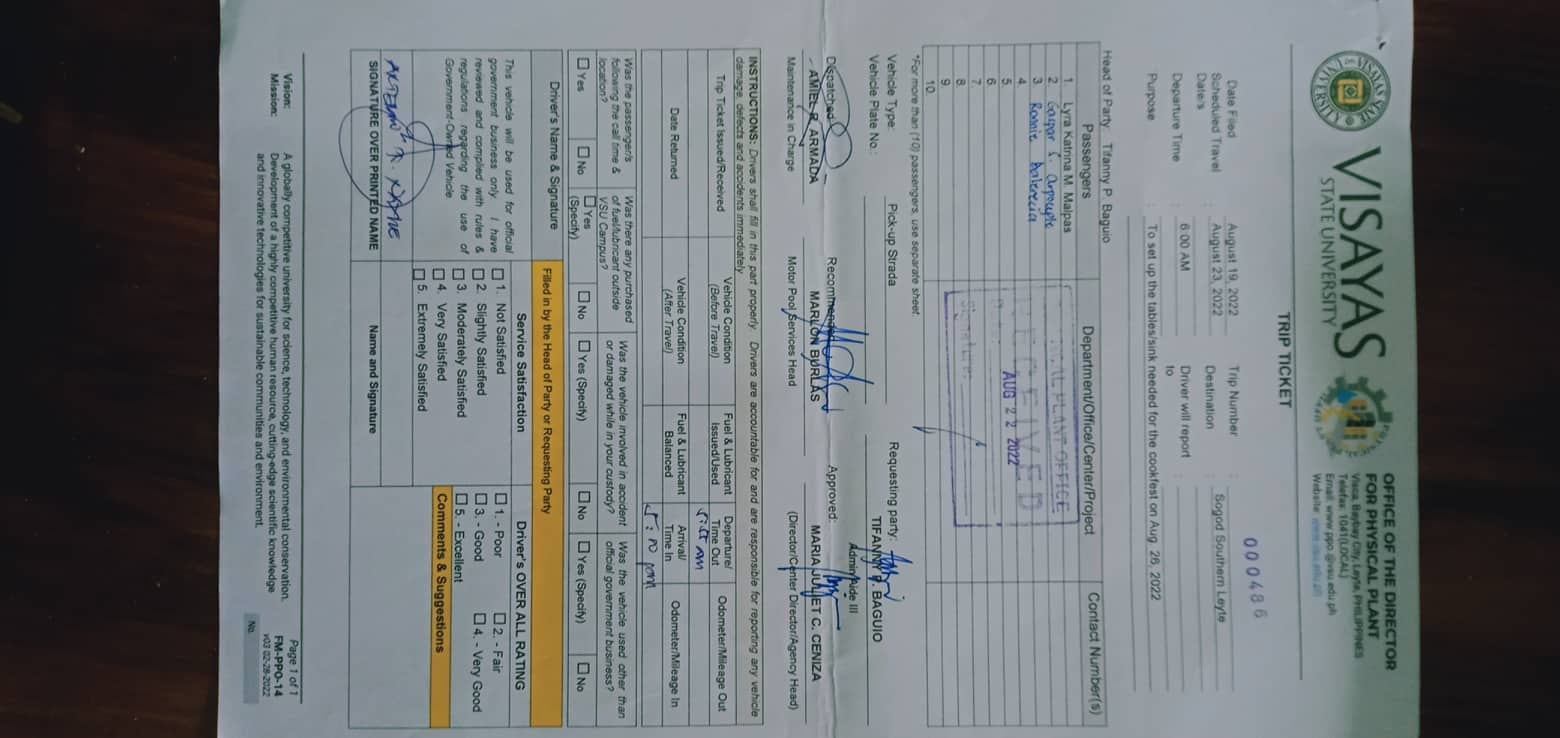 VISAYAS
STATE UNIVERSITY
OFFICE OF THE DIRECTOR
FOR PHYSICAL PLANT
Visca, Baybay City, Leyte, PHILIPPINES
Telefax: 1041(LOCAL)
Email: www.ppo@vsu.edu.ph
Website: www.vsu.edu.ph
TRIP TICKET
000486
Date Filed : August 19, 2022 Trip Number :
Scheduled Travel Date/s : August 23, 2022 Destination : Sogod Southern Leyte
Departure Time : 6:00 AM Driver will report to :
Purpose : To set up the tables/sink needed for the cookfest on Aug. 26, 2022
Head of Party: Tifanny P. Baguio
Passengers Department/Office/Center/Project Contact Number(s)
1. Lyra Katrina M. Malpas
2. Gaspar S.
3. Ronnie
4.
5.
6.
7.
8.
9.
10.
PLANT OFFICE
RECEIVED
AUG 22 2022
*For more than (10) passengers, use separate sheet.
Vehicle Type: Pick-up Strada Requesting party:
Vehicle Plate No.: TIFANNY P. BAGUIO
Admin Aide III
Dispatched: Recommended: Approved:
AMIEL R. ARMADA MARLON BURLAS MARIA JULIET C. CENIZA
Maintenance in Charge Motor Pool Services Head (Director/Center Director/Agency Head)
INSTRUCTIONS: Drivers shall fill in this part properly. Drivers are accountable for and are responsible for reporting any vehicle
damage, defects and accidents immediately.
Trip Ticket Issued/Received Vehicle Condition (Before Travel) Fuel & Lubricant Issued/Used Departure/ Time Out Odometer/Mileage Out
Date Returned Vehicle Condition (After Travel) Fuel & Lubricant Balanced Arrival/ Time In Odometer/Mileage In
Was the passenger/s following the call time & location? Was there any purchased of fuel/lubricant outside VSU Campus? Was the vehicle involved in accident or damaged while in your custody? Was the vehicle used other than official government business?
☐ Yes ☐ No ☐ Yes (Specify) ☐ No ☐ Yes (Specify) ☐ No ☐ Yes (Specify) ☐ No
Driver's Name & Signature Filled in by the Head of Party or Requesting Party
This vehicle will be used for official
government business only. I have
reviewed and complied with rules &
regulations regarding the use of
Government-Owned Vehicle
SIGNATURE OVER PRINTED NAME
Service Satisfaction
☐ 1. Not Satisfied
☐ 2. Slightly Satisfied
☐ 3. Moderately Satisfied
☐ 4. Very Satisfied
☐ 5. Extremely Satisfied
Name and Signature
Driver's OVER ALL RATING
☐ 1. - Poor ☐ 2. - Fair
☐ 3. - Good ☐ 4. - Very Good
☐ 5. - Excellent
Comments & Suggestions
Vision: A globally competitive university for science, technology, and environmental conservation.
Mission: Development of a highly competitive human resource, cutting-edge scientific knowledge
and innovative technologies for sustainable communities and environment.
Page 1 of 1
FM-PPO-14
v03 02-28-2022
No.